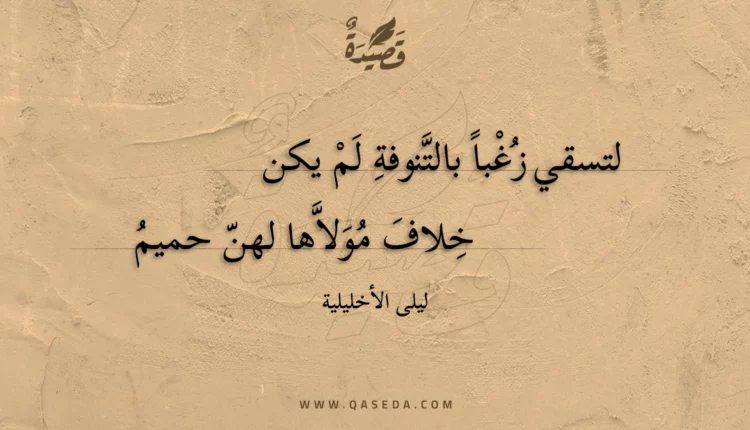 قَصِيدَةٌ
لتسقي زُغْباً بالتَّنوفةِ لَمْ يكن
خِلافَ مُوَلاَّها لهنّ حميمُ
ليلى الأخليلية
WWW.QASEDA.COM